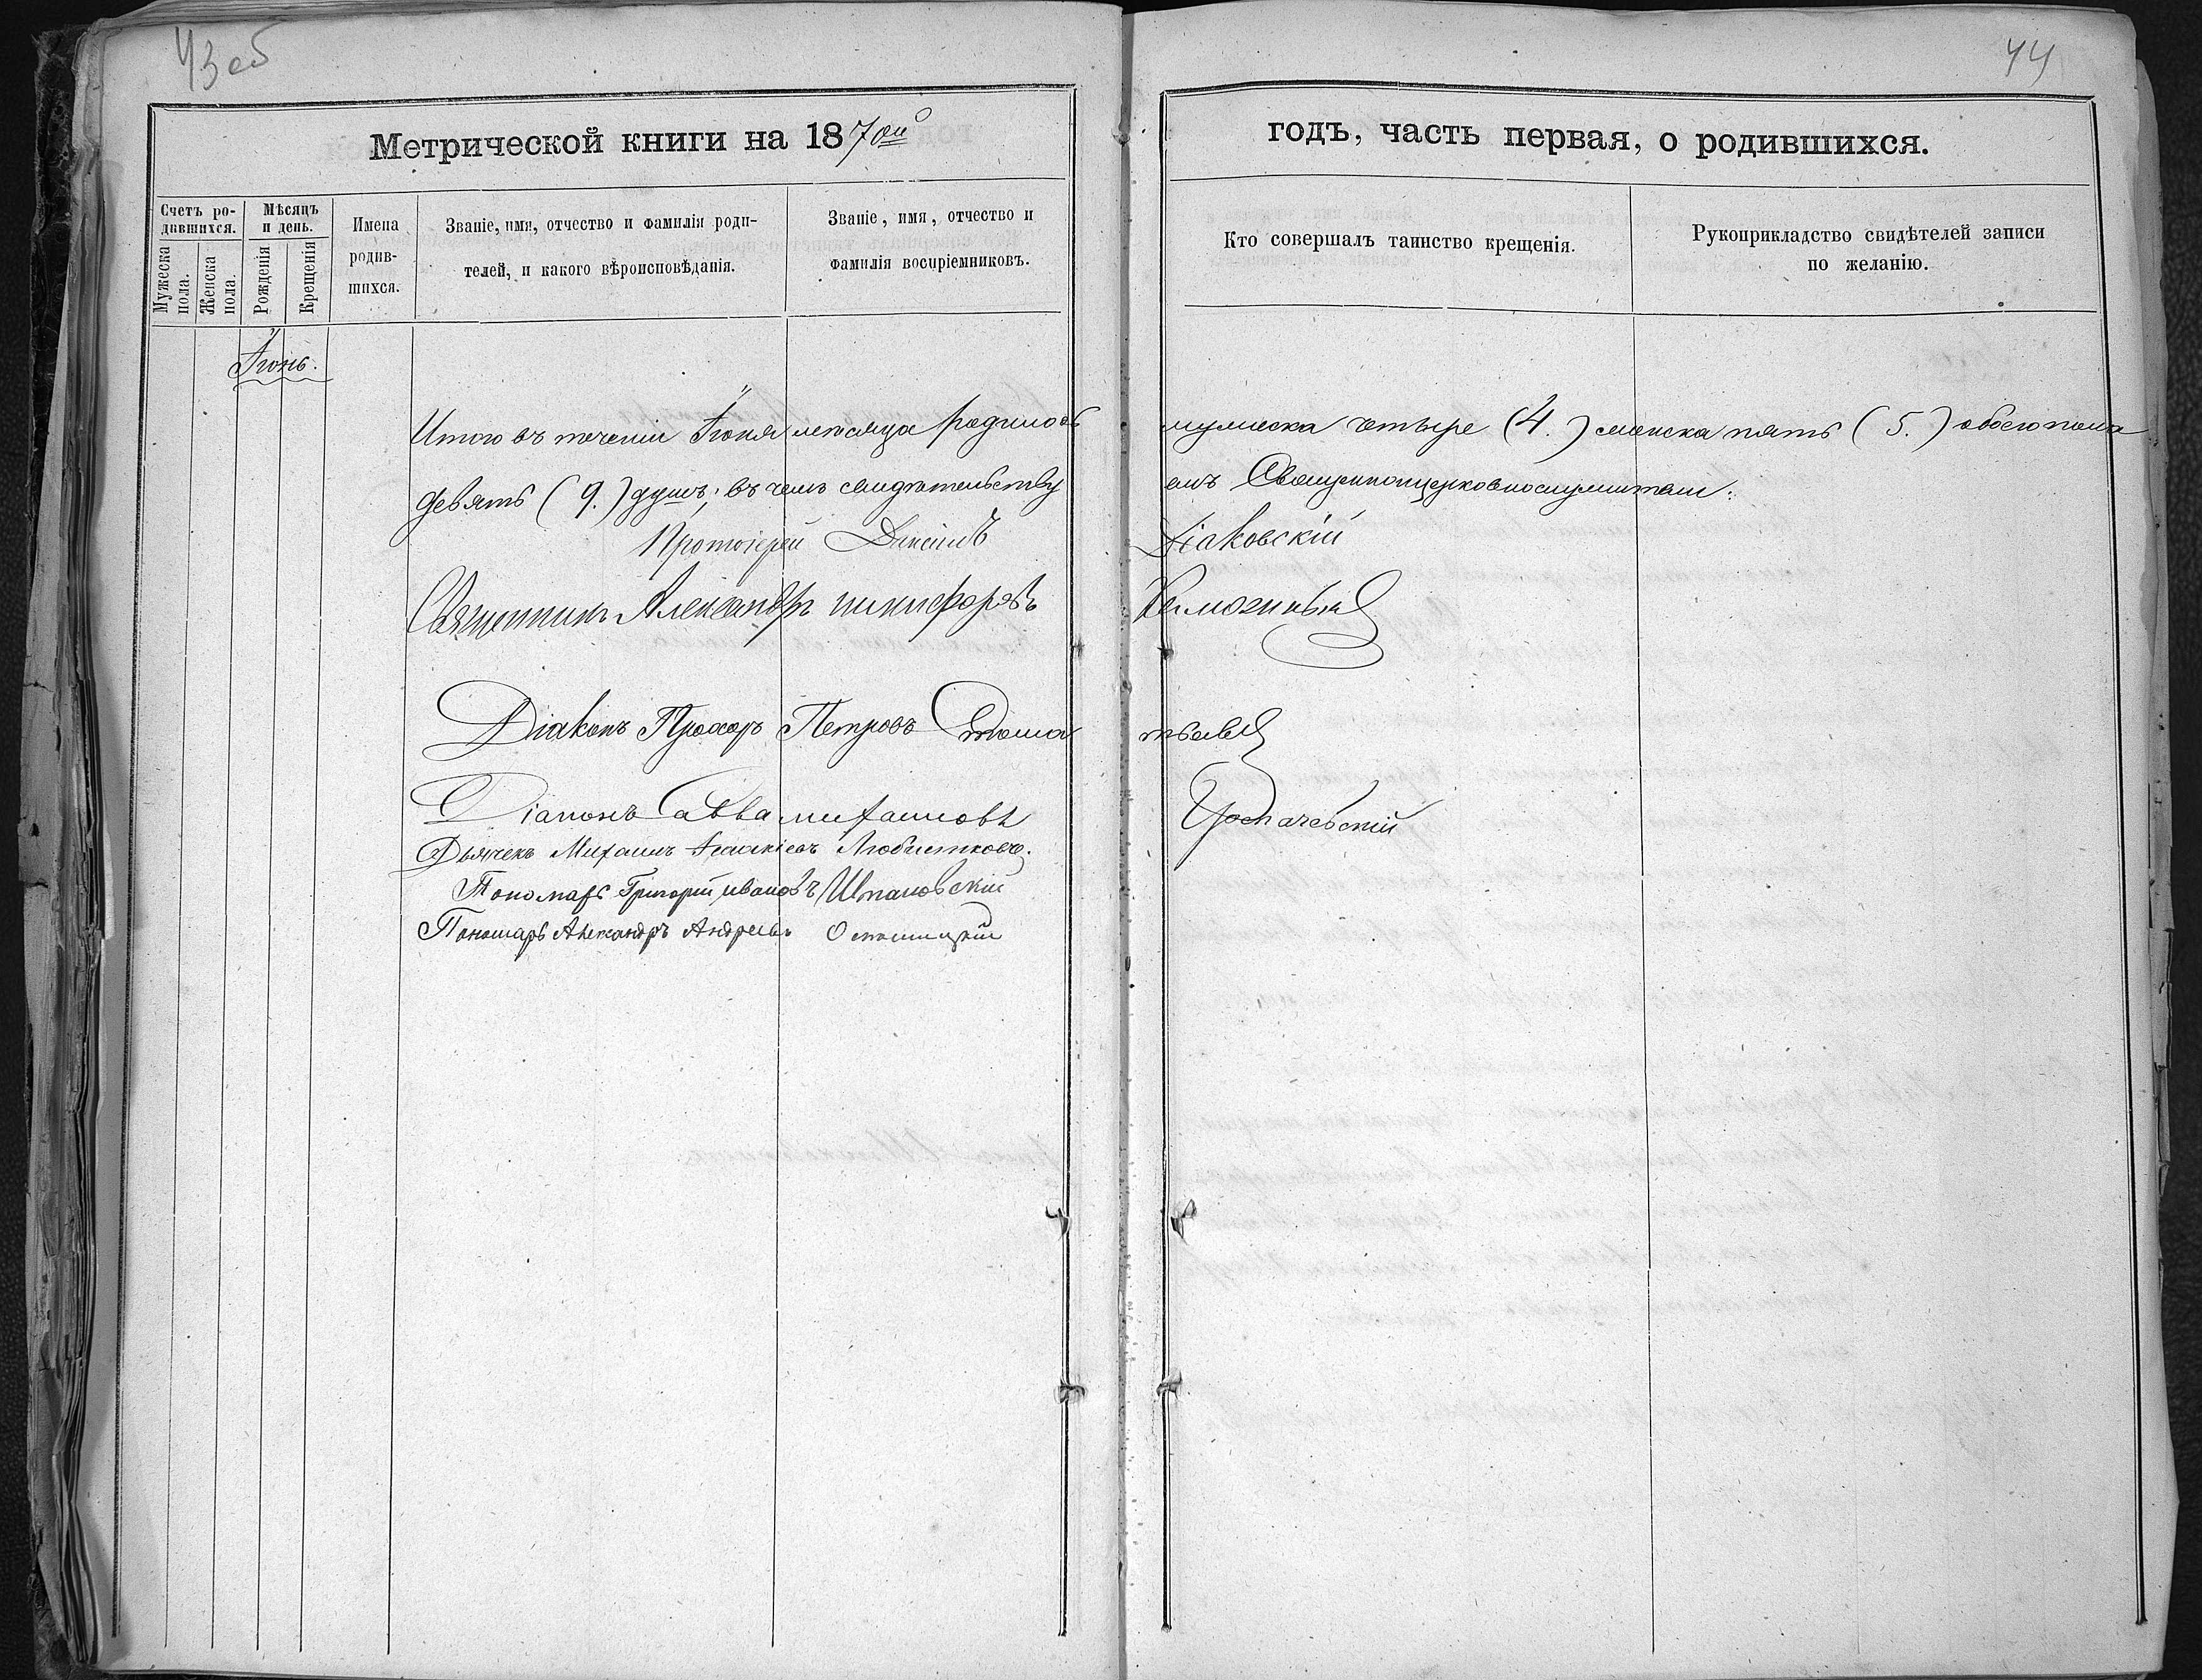 43 об
44
Метрической книги на 1870й
годъ, часть первая, о родившихся.
Счетъ ро-
дившихся.
Мужеска
пола.
Женска
пола.
Мѣсяцъ
и день.
Рожденія
Крещенія
Имена
родив-
шихся.
Званіе, имя, отчество и фамилія роди-
телей, и какого вѣроисповѣданія.
Званіе, имя, отчество и
фамилія воспріемниковъ.
Кто совершалъ таинство крещенія.
Рукоприкладство свидѣтелей записи
по желанію.
Іюнь.
Итого въ теченіи Іюня мѣсяца родилось мужеска четыре (4.) женска пять (5.) обоего пола
девять (9.) душъ; въ чемъ свидѣтельствуемъ Священноцерковнослужители:
Протоіерей
Священникъ Александръ Никифоровъ
Діаконъ Прохоръ Петровъ
Діаконъ Савва Михаиловъ
Дьячекъ Михаилъ
Пономарь Григорій Ивановъ
Пономарь Александръ Андреевъ